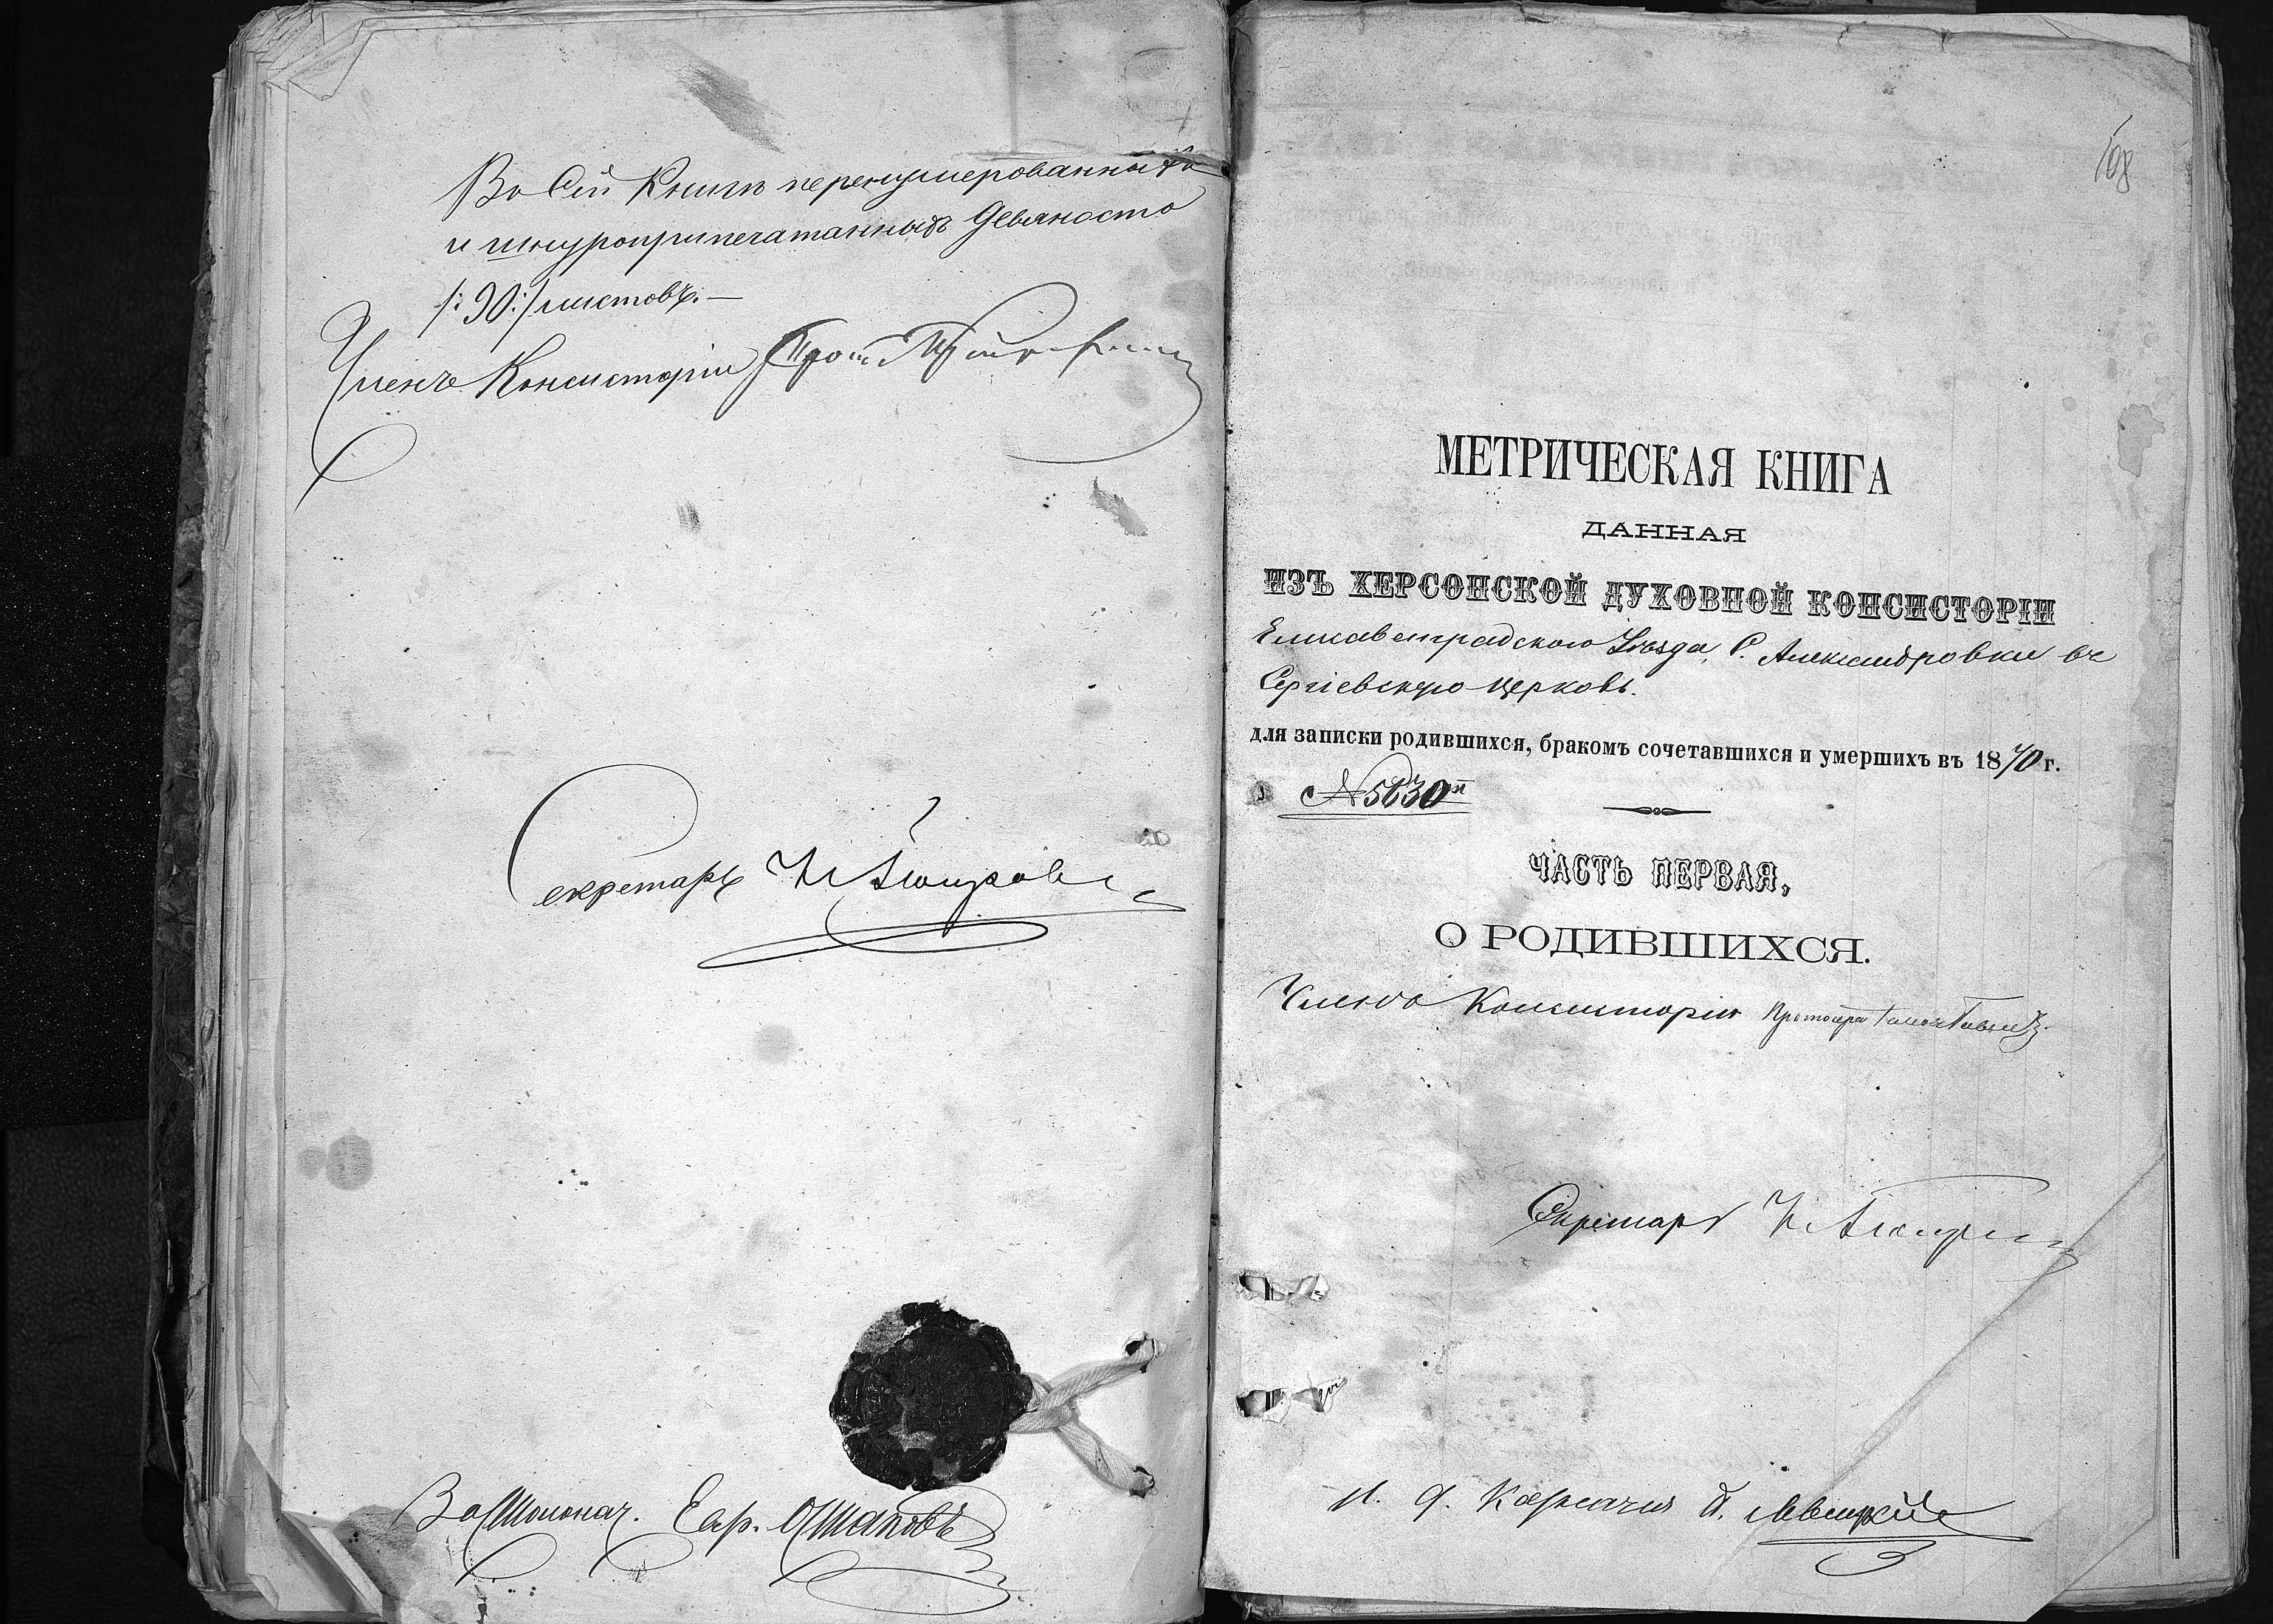 Въ сей Книгѣ перенумерованныхъ
и шнуроприпечатанныхъ девяносто
/:90:/ листовъ.—
Членъ Консисторіи
Секретарь
За Столонач.
168
МЕТРИЧЕСКАЯ КНИГА
ДАННАЯ
ИЗЪ ХЕРСОНСКОЙ ДУХОВНОЙ КОНСИСТОРІИ
Елисаветградского Уѣзда, С. Александровки въ
Сергіевскую церковь.
для записки родившихся, бракомъ сочетавшихся и умершихъ въ 1870 г.
№ 5830
ЧАСТЬ ПЕРВАЯ,
О РОДИВШИХСЯ.
Членъ Консисторіи
Секретарь